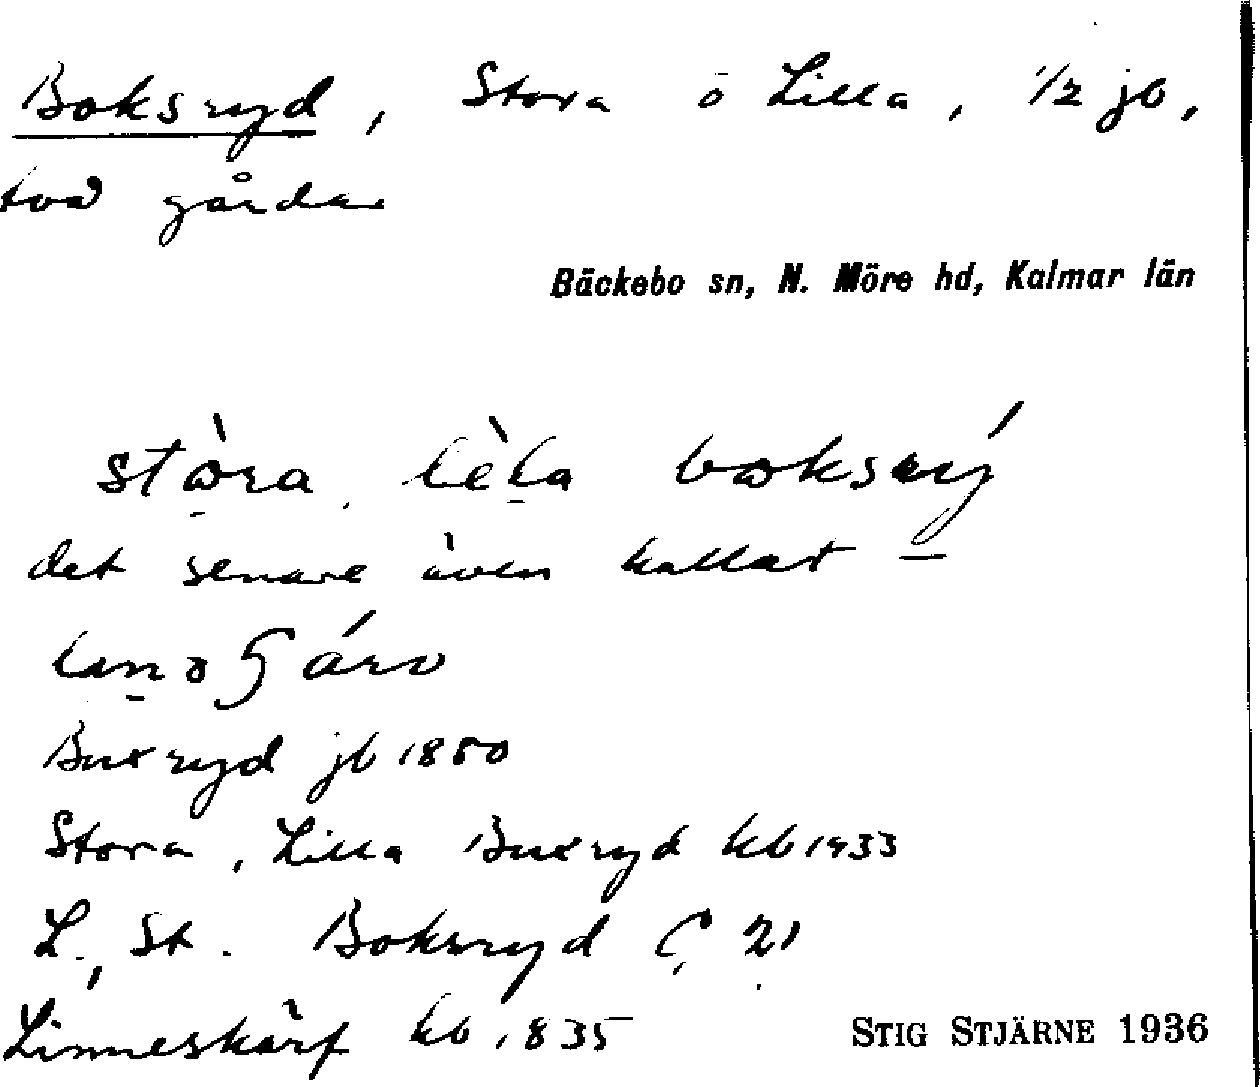 Boksryd, Stora o Lilla, 1/2 jb,
två gårdar
Bäckebo sn, N. Möre hd, Kalmar län
stòra, lèla boksrý
det senare även kallat —
Buxryd jb 1880
Stora, Lilla Buxryd kb 1933
L., St. Boksryd 21
Linneskärf kb 1835
STIG STJÄRNE 1936